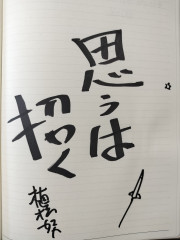 思うは
招く
植松努